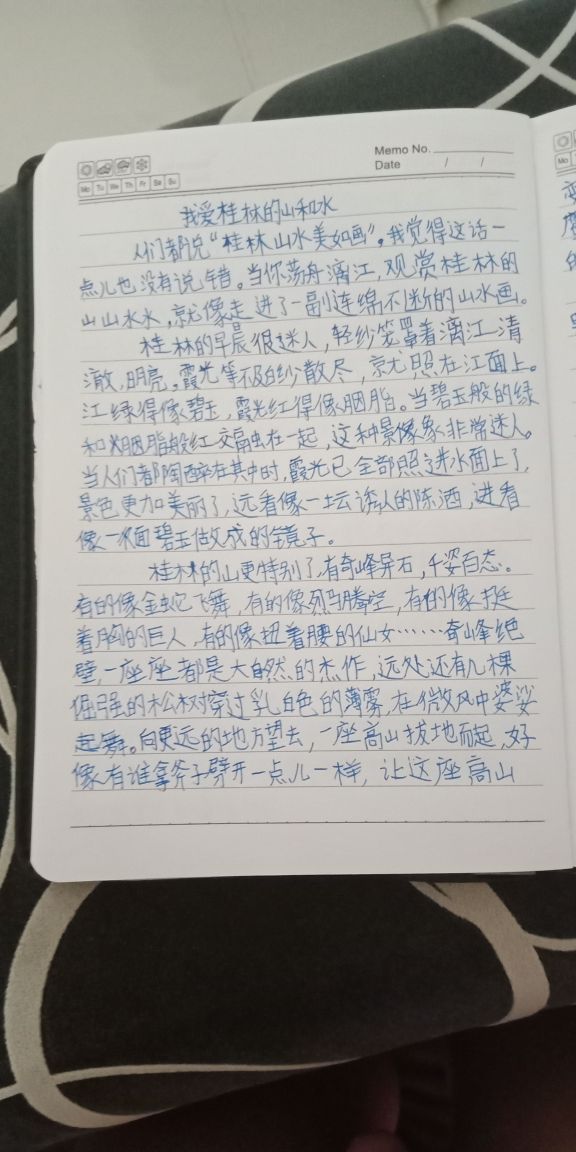 Memo No.
Date / /
Mo Tu We Th Fr Sa Su
我爱桂林的山和水
人们都说“桂林山水美如画”。我觉得这话一
点儿也没有说错。当你荡舟漓江，观赏桂林的
山山水水，就像走进了一副连绵不断的山水画。
桂林的早晨很迷人，轻纱笼罩着漓江清
澈，明亮。霞光等不及白纱散尽，就照在江面上。
江绿得像碧玉，霞光红得像胭脂。当碧玉般的绿
和胭脂般红交融在一起，这种景象非常迷人。
当人们都陶醉在其中时，霞光已全部照进水面上了，
景色更加美丽了，远看像一坛诱人的陈酒，进看
像一面碧玉做成的镜子。
桂林的山更特别了，有奇峰异石，千姿百态。
有的像金蛇飞舞，有的像烈马腾空，有的像挺
着胸的巨人，有的像扭着腰的仙女……奇峰绝
壁，一座座都是大自然的杰作，远处还有几棵
倔强的松树穿过乳白色的薄雾，在微风中婆娑
起舞。向更远的地方望去，一座高山拔地而起，好
像有谁拿斧子劈开一点儿一样，让这座高山
Mo
的